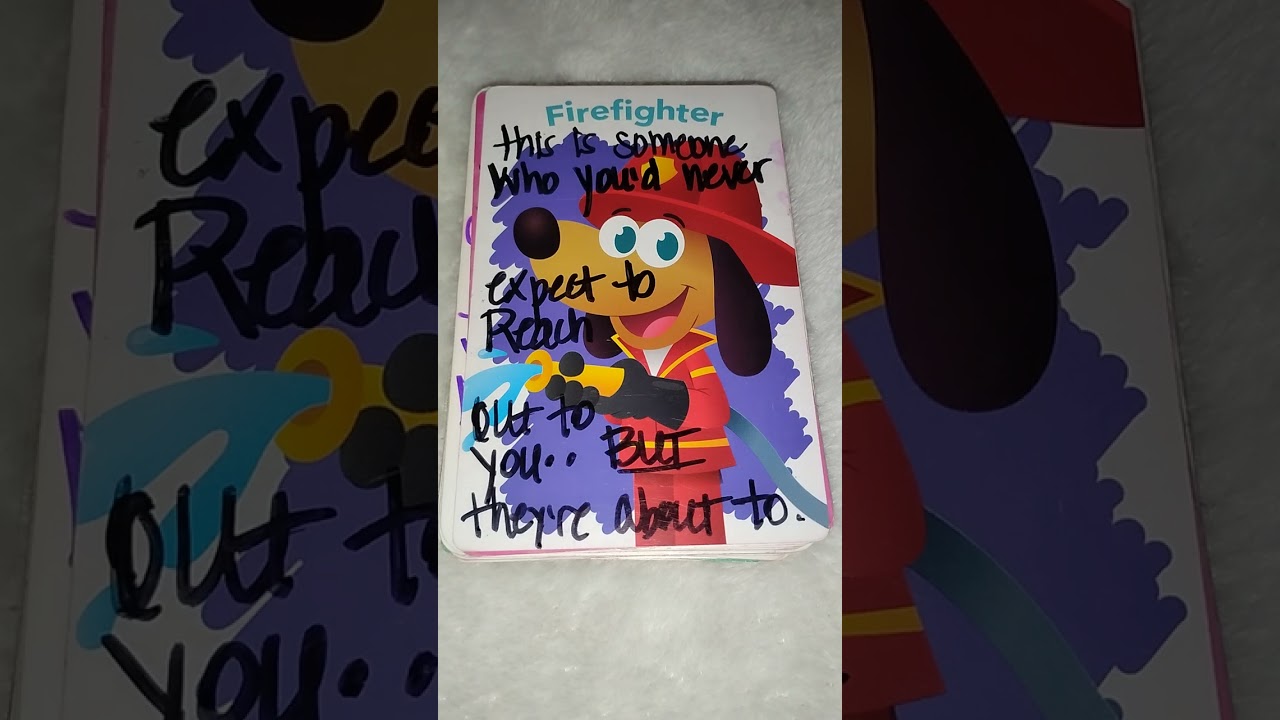 Firefighter
this is someone
who you'd never
expect to
Reach
out to
you.. BUT
they're about to.